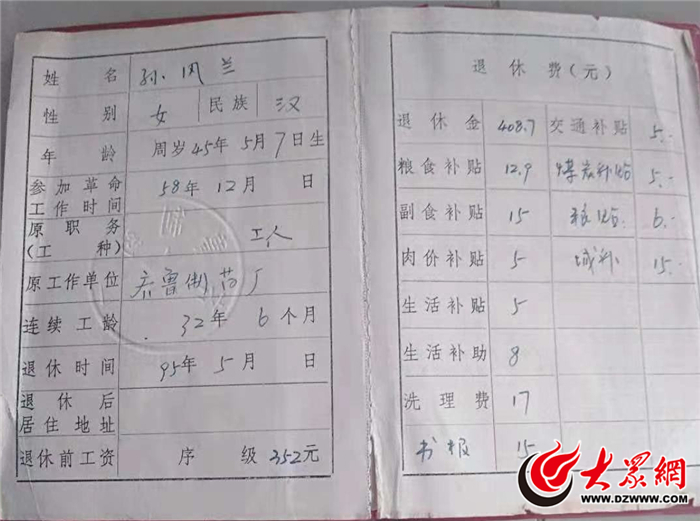 姓名 孙凤兰
性别 女 民族 汉
年龄 周岁45年5月7日生
参加革命工作时间 58年12月 日
原职务(工种) 工人
原工作单位 齐鲁制药厂
连续工龄 32年6个月
退休时间 95年5月 日
退休后居住地址
退休前工资 序 级 352元
退休费(元)
退休金 408.7 交通补贴 5.-
粮食补贴 12.9 煤炭补贴 5.-
副食补贴 15 粮贴 6.-
肉价补贴 5 城补 15.-
生活补贴 5
生活补助 8
洗理费 17
书报 15
大眾網
WWW.DZWWW.COM